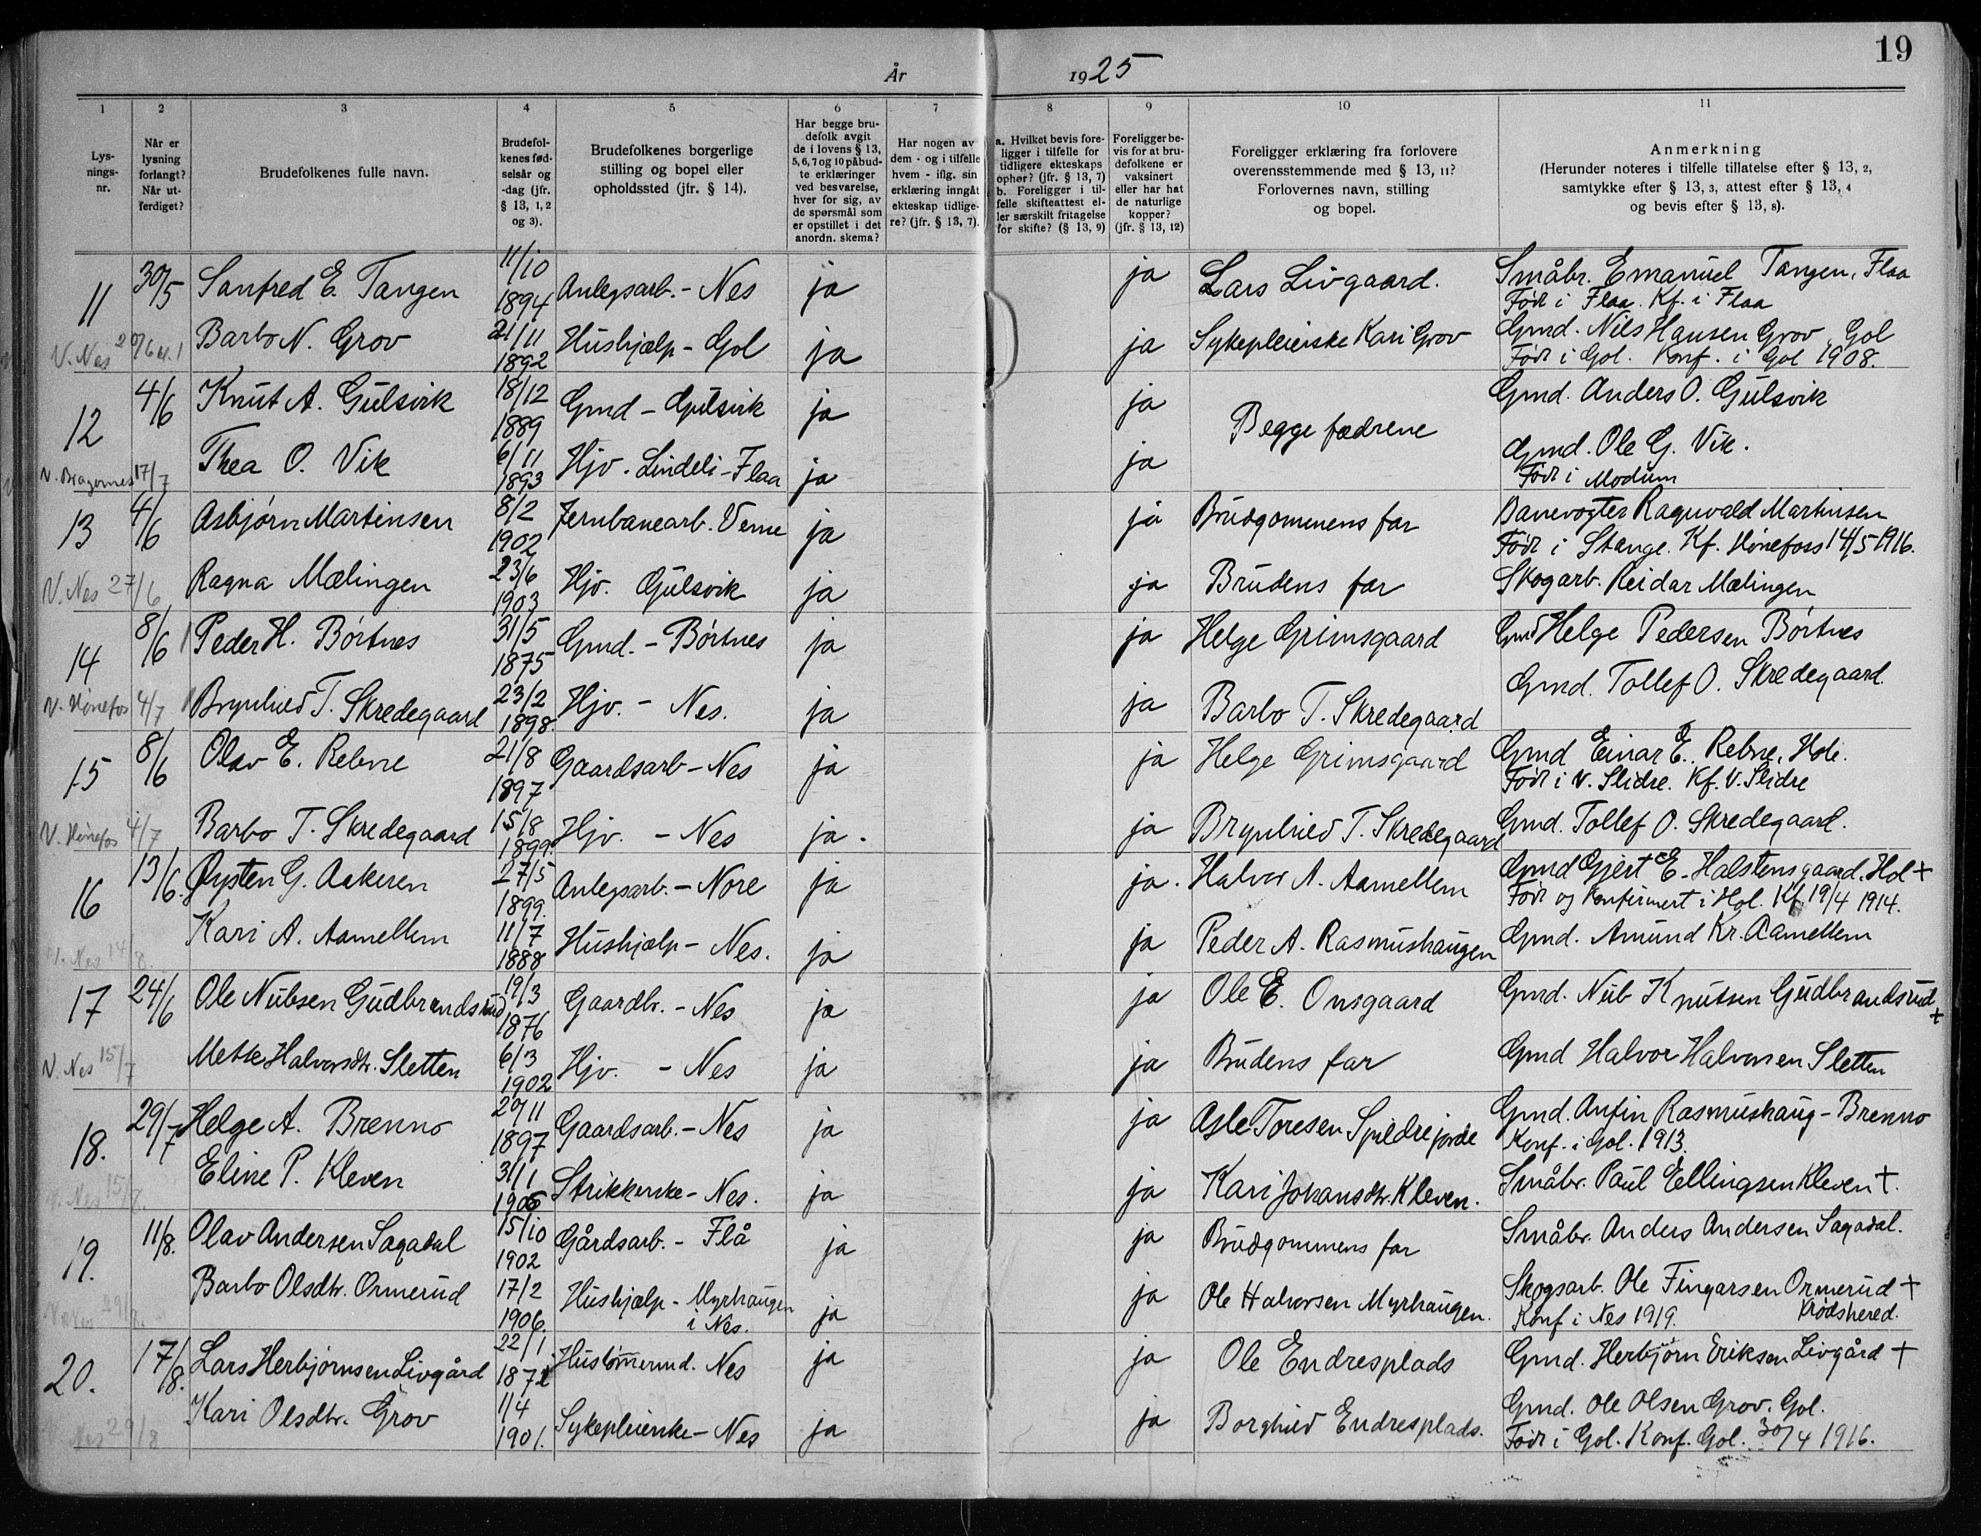 19
År 1925
1 2 3 4 5 6 7 8 9 10 11
Lys-
nings-
nr.
Når er
lysning
forlangt?
Når ut-
ferdiget?
Brudefolkenes fulle navn.
Brudefol-
kenes fød-
selsår og
-dag (jfr.
§ 13, 1, 2
og 3).
Brudefolkenes borgerlige
stilling og bopel eller
opholdssted (jfr. § 14).
Har begge bru-
defolk avgit
de i lovens § 13,
5, 6, 7 og 10 påbud-
te erklæringer
ved besvarelse,
hver for sig, av
de spørsmål som
er opstillet i det
anordn. skema?
Har nogen av
dem - og i tilfelle
hvem - iflg. sin
erklæring inngått
ekteskap tidlige-
re? (jfr. § 13, 7).
a. Hvilket bevis fore-
ligger i tilfelle for
tidligere ekteskaps
ophør? (jfr. § 13, 7)
b. Foreligger i til-
felle skifteattest el-
ler særskilt fritagelse
for skifte? (§ 13, 9)
Foreligger be-
vis for at bru-
defolkene er
vaksinert
eller har hat
de naturlige
kopper?
(jfr. § 13, 12)
Foreligger erklæring fra forlovere
overensstemmende med § 13, 11?
Forlovernes navn, stilling
og bopel.
Anmerkning
(Herunder noteres i tilfelle tillatelse efter § 13, 2,
samtykke efter § 13, 3, attest efter § 13, 4
og bevis efter § 13, 8).
11 30/5 Sanfred E. Tangen 11/10 1894 Anlegsarb. - Nes ja ja Lars Livgaard. Småbr. Emanuel Tangen, Flaa
Født i Flaa. Kf. i Flaa
V. Nes 20/6 Barbo N. Grov 21/11 1892 Hushjælp - Gol ja ja Sykepleierske Kari Grov Gmd. Nils Hansen Grov, Gol
Født i Gol. Konf. i Gol 1908.
12 4/6 Knut A. Gulsvik 18/12 1889 Gmd - Gulsvik ja ja Begge fædrene Gmd. Anders O. Gulsvik
V. Bragernes 17/7 Thea O. Vik 6/11 1893 Hjv. Lindeli - Flaa ja ja Gmd. Ole G. Vik.
Født i Modum
13 4/6 Asbjørn Martinsen 8/2 1902 Jernbanearb. Veme ja ja Brudgommens far Banevogter Ragnvald Martinsen
Født i Stange. Kf. Hønefoss 14/5 1916.
V. Nes 27/6 Ragna Mælingen 23/6 1903 Hjv. Gulsvik ja ja Brudens far Skogarb. Reidar Mælingen
14 8/6 Peder H. Børtnes 31/5 1875 Gmd. - Børtnes ja ja Helge Grimsgaard Gmd Helge Pedersen Børtnes
V. Hønefos 4/7 Brynhild T. Skredegaard 23/2 1898. Hjv. - Nes. ja ja Barbo T. Skredegaard Gmd. Tollef O. Skredegaard.
15 8/6 Olav E. Rebne 21/8 1897 Gaardsarb - Nes ja ja Helge Grimsgaard Gmd Einar E. Rebne, Hole.
Født i V. Slidre. Kf. V. Slidre
V. Hønefos 4/7 Barbo T. Skredegaard 15/8 1899. Hjv. - Nes ja. ja Brynhild T. Skredegaard Gmd. Tollef O. Skredegaard.
16 13/6. Øysten G. Aakeren 27/5 1899. Anlegsarb. - Nore ja ja. Halvor A. Aamellem Gmd Gjert E. Halstensgaard, Hol +
Født og konfirmert i Hol. Kf. 19/4 1914.
V. Nes 14/8. Kari A. Aamellem 11/7 1888 Hushjælp - Nes. ja ja Peder A. Rasmushaugen Gmd. Amund Kr. Aamellem
17 24/6 Ole Nubsen Gudbrandsrud 19/3 1876 Gaardbr. - Nes ja ja Ole E. Onsgaard Gmd. Nub Knutsen Gudbrandsrud +
V. Nes 15/7 Mette Halvorsdtr. Sletten 6/3 1902 Hjv. - Nes ja ja Brudens far Gmd Halvor Halvorsen Sletten
18. 29/7 Helge A. Brenno 20/11 1897 Gaardsarb. - Nes ja ja Asle Toresen Spildrejorde Gmd. Anfin Rasmushaug - Brenno
Konf. i Gol. 1913.
V. Nes 15/8. Eline P. Kleven 31/1 1906 Strikkerske - Nes. ja ja Kari Johansdtr. Kleven. Småbr. Paul Ellingsen Kleven +.
19. 11/8. Olav Andersen Sagadal 15/10 1902 Gårdsarb. - Flå ja ja Brudgommens far Småbr. Anders Andersen Sagadal.
V. Nes 29/8. Barbo Olsdtr. Ormerud 17/2 1906 Hushjælp - Myrhaugen
i Nes. ja ja Ole Halvorsen Myrhaugen. Skogsarb. Ole Fingarsen Ormerud +
Konf i Nes 1919. Krødshered.
20. 17/8. Lars Herbjørnsen Livgård 22/1 Hustømmermd. Nes ja ja Ole Endresplads Gmd. Herbjørn Eriksen Livgård +
V. Nes 29/8 Kari Olsdtr. Grov 1/4 1901. Sykepleierske - Nes ja ja Borghild Endresplads. Gmd. Ole Olsen Grov. Gol.
Født i Gol. Konf. Gol. 30/4 1916.